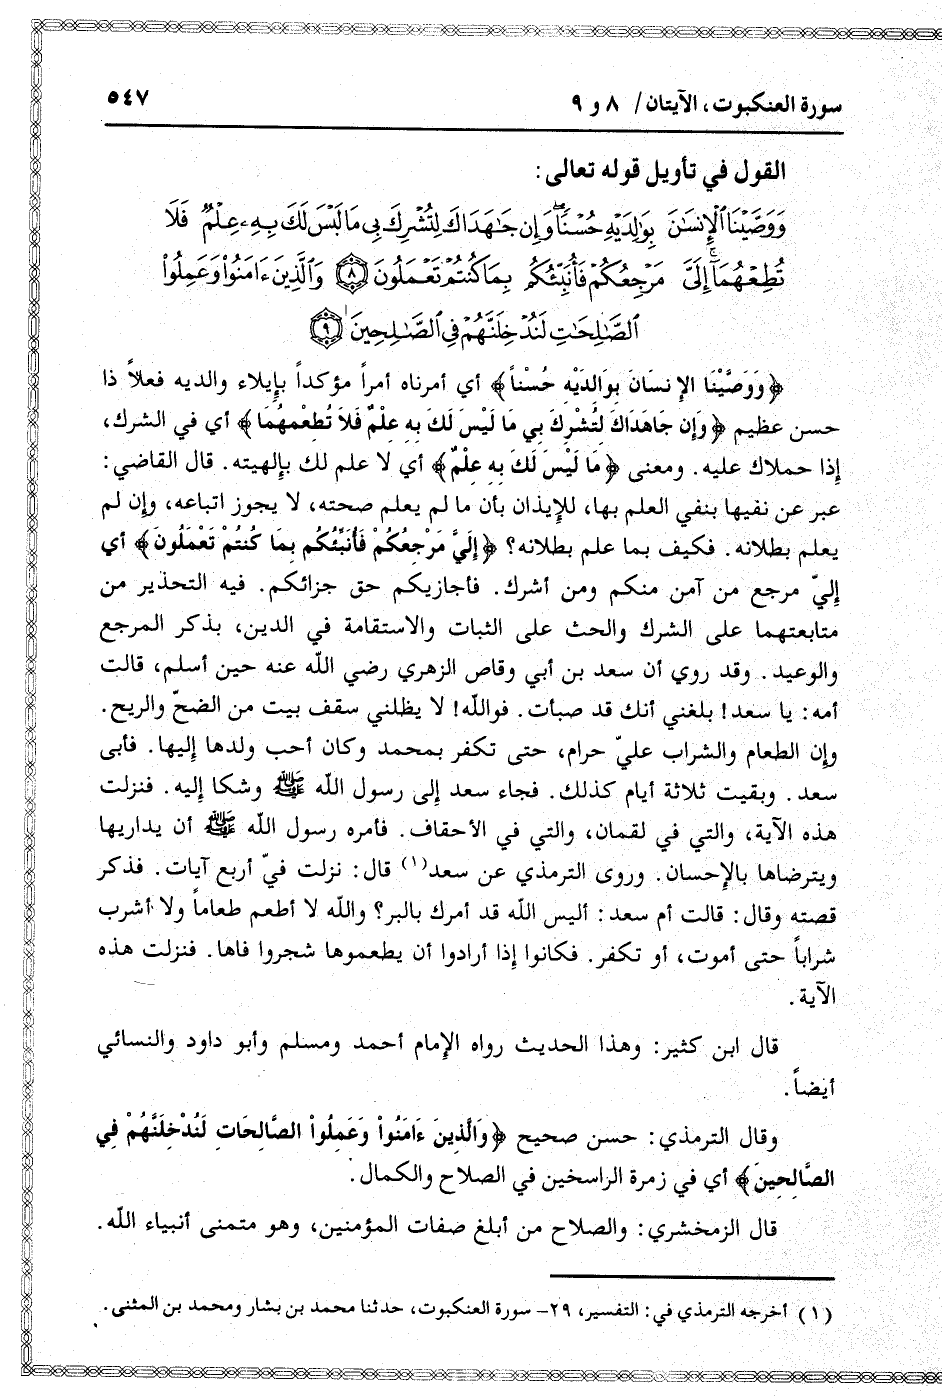 سورة العنكبوت، الآيتان/ ٨ و ٩
٥٤٧
القول في تأويل قوله تعالى:
وَوَصَّيْنَا ٱلْإِنسَٰنَ بِوَٰلِدَيْهِ حُسْنًا وَإِن جَٰهَدَاكَ لِتُشْرِكَ بِي مَا لَيْسَ لَكَ بِهِۦ عِلْمٌ فَلَا
تُطِعْهُمَآ إِلَيَّ مَرْجِعُكُمْ فَأُنَبِّئُكُم بِمَا كُنتُمْ تَعْمَلُونَ ﴿٨﴾ وَٱلَّذِينَ ءَامَنُوا۟ وَعَمِلُوا۟
ٱلصَّٰلِحَٰتِ لَنُدْخِلَنَّهُمْ فِي ٱلصَّٰلِحِينَ ﴿٩﴾
﴿وَوَصَّيْنَا الإِنسَانَ بِوَالِدَيْهِ حُسْناً﴾ أي أمرناه أمراً مؤكداً بإيلاء والديه فعلاً ذا
حسن عظيم ﴿وَإِن جَاهَدَاكَ لِتُشْرِكَ بِي مَا لَيْسَ لَكَ بِهِ عِلْمٌ فَلاَ تُطِعْهُمَا﴾ أي في الشرك،
إذا حملاك عليه. ومعنى ﴿مَا لَيْسَ لَكَ بِهِ عِلْمٌ﴾ أي لا علم لك بإلهيته. قال القاضي:
عبر عن نفيها بنفي العلم بها، للإيذان بأن ما لم يعلم صحته، لا يجوز اتباعه، وإن لم
يعلم بطلانه. فكيف بما علم بطلانه؟ ﴿إِلَيَّ مَرْجِعُكُمْ فَأُنَبِّئُكُم بِمَا كُنتُمْ تَعْمَلُونَ﴾ أي
إليّ مرجع من آمن منكم ومن أشرك. فأجازيكم حق جزائكم. فيه التحذير من
متابعتهما على الشرك والحث على الثبات والاستقامة في الدين، بذكر المرجع
والوعيد. وقد روي أن سعد بن أبي وقاص الزهري رضي الله عنه حين أسلم، قالت
أمه: يا سعد! بلغني أنك قد صبأت. فوالله! لا يظلني سقف بيت من الضحّ والريح.
وإن الطعام والشراب عليّ حرام، حتى تكفر بمحمد وكان أحب ولدها إليها. فأبى
سعد. وبقيت ثلاثة أيام كذلك. فجاء سعد إلى رسول الله ﷺ وشكا إليه. فنزلت
هذه الآية، والتي في لقمان، والتي في الأحقاف. فأمره رسول الله ﷺ أن يداريها
ويترضاها بالإحسان. وروى الترمذي عن سعد(١) قال: نزلت فيّ أربع آيات. فذكر
قصته وقال: قالت أم سعد: أليس الله قد أمرك بالبر؟ والله لا أطعم طعاماً ولا أشرب
شراباً حتى أموت، أو تكفر. فكانوا إذا أرادوا أن يطعموها شجروا فاها. فنزلت هذه
الآية.
قال ابن كثير: وهذا الحديث رواه الإمام أحمد ومسلم وأبو داود والنسائي
أيضاً.
وقال الترمذي: حسن صحيح ﴿وَالَّذِينَ ءَامَنُواْ وَعَمِلُواْ الصَّالِحَاتِ لَنُدْخِلَنَّهُمْ فِي
الصَّالِحِينَ﴾ أي في زمرة الراسخين في الصلاح والكمال.
قال الزمخشري: والصلاح من أبلغ صفات المؤمنين، وهو متمنى أنبياء الله.
(١) أخرجه الترمذي في: التفسير، ٢٩- سورة العنكبوت، حدثنا محمد بن بشار ومحمد بن المثنى.